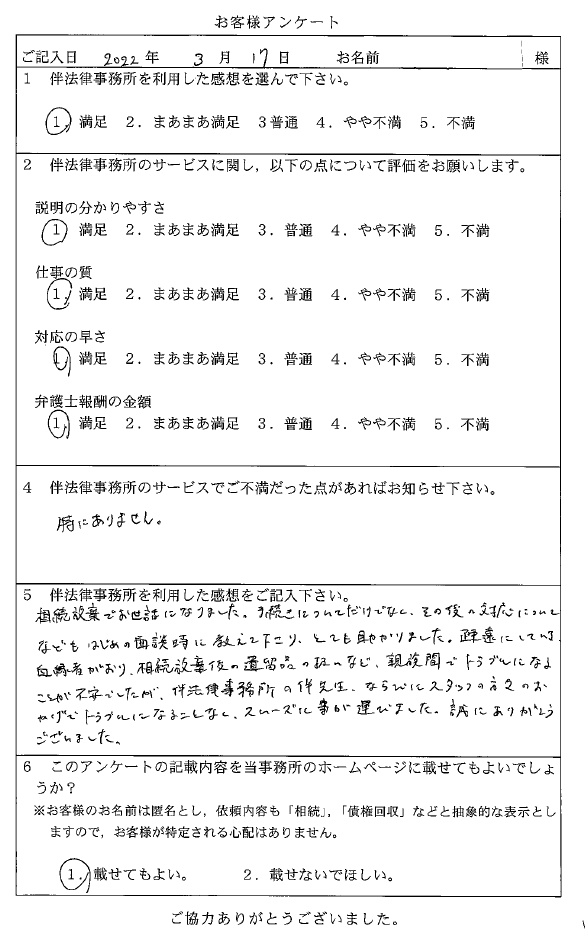 お客様アンケート
ご記入日 2022年 3月 17日 お名前 様
1 伴法律事務所を利用した感想を選んで下さい。
1. 満足 2. まあまあ満足 3普通 4. やや不満 5. 不満
2 伴法律事務所のサービスに関し,以下の点について評価をお願いします。
説明の分かりやすさ
1 満足 2. まあまあ満足 3. 普通 4. やや不満 5. 不満
仕事の質
1. 満足 2. まあまあ満足 3. 普通 4. やや不満 5. 不満
対応の早さ
1. 満足 2. まあまあ満足 3. 普通 4. やや不満 5. 不満
弁護士報酬の金額
1. 満足 2. まあまあ満足 3. 普通 4. やや不満 5. 不満
4 伴法律事務所のサービスでご不満だった点があればお知らせ下さい。
特にありません。
5 伴法律事務所を利用した感想をご記入下さい。
相続放棄でお世話になりました。手続きについてだけでなく、その後の対応について
などもはじめの面談時に教えて下さり、とても助かりました。疎遠にしている
血縁者がおり、相続放棄後の遺留品の扱いなど、親族間でトラブルになる
ことが不安でしたが、伴法律事務所の伴先生、ならびにスタッフの方々のお
かげでトラブルになることもなく、スムーズに事が運びました。誠にありがとう
ございました。
6 このアンケートの記載内容を当事務所のホームページに載せてもよいでしょ
うか?
※お客様のお名前は匿名とし,依頼内容も「相続」,「債権回収」などと抽象的な表示とし
ますので,お客様が特定される心配はありません。
1. 載せてもよい。 2. 載せないでほしい。
ご協力ありがとうございました。